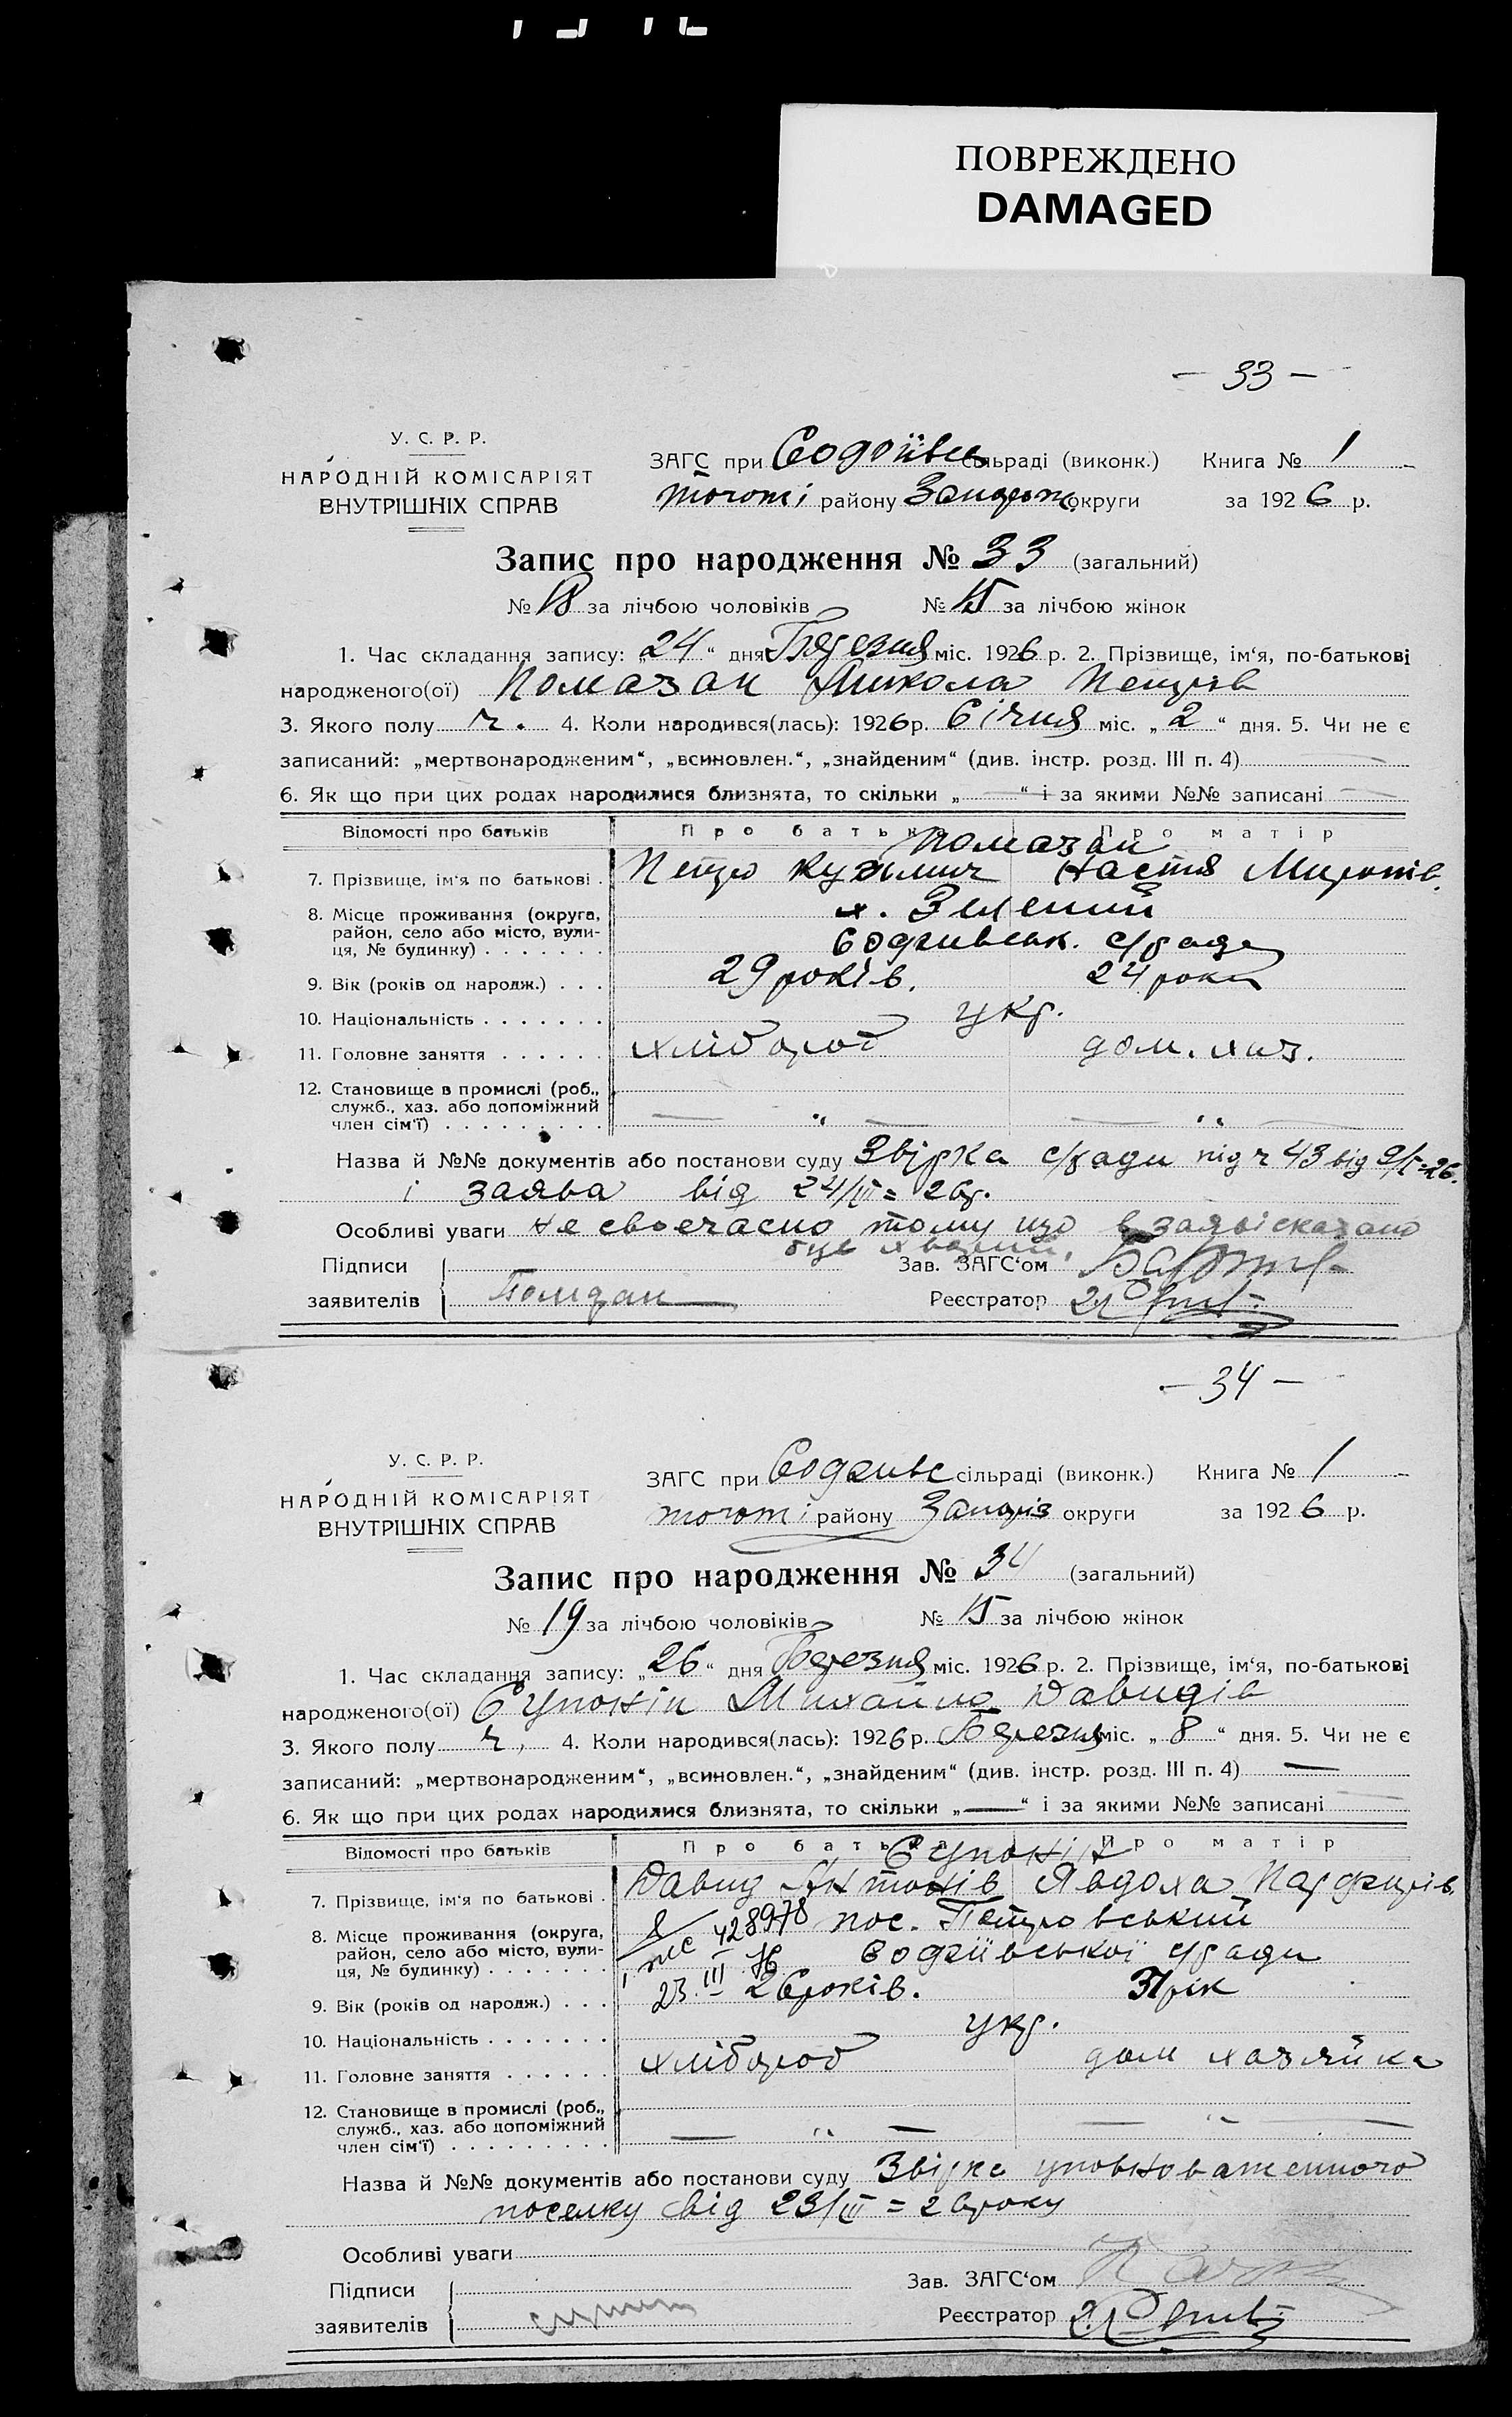 ПОВРЕЖДЕНО
DAMAGED
— 33 —
У. С. Р. Р.
НАРОДНІЙ КОМІСАРІЯТ
ВНУТРІШНІХ СПРАВ
ЗАГС при сільраді (виконк.) Книга № 1
району округи за 1926 р.
Запис про народження № 33 (загальний)
№ 18 за лічбою чоловіків № 15 за лічбою жінок
1. Час складання запису: „24“ дня Березня міс. 1926 р. 2. Прізвище, ім‘я, по-батькові
народженого(ої) Помазан Микола Петрів
3. Якого полу ч. 4. Коли народився(лась): 1926 р. Січня міс. „2“ дня. 5. Чи не є
записаний: „мертвонародженим“, „всиновлен.“, „знайденим“ (див. інстр. розд. III п. 4)
6. Як що при цих родах народилися близнята, то скільки „—“ і за якими №№ записані —
Відомості про батьків Про батька Про матір
Помазан
7. Прізвище, ім‘я по батькові Петро Кузьмич Настя Миронів.
8. Місце проживання (округа, х. Зелений
район, село або місто, вули-
ця, № будинку) с/ради
9. Вік (років од народж.) 29 років. 24 роки
10. Національність укр.
11. Головне заняття хлібороб дом. хаз.
12. Становище в промислі (роб.,
служб., хаз. або допоміжний
член сім‘ї) — „ — — „ —
Назва й №№ документів або постанови суду Звірка с/ради під ч 43 від 9/I-26.
і заява від 24/III=26р.
Особливі уваги Не своєчасно тому що в заяві сказано
був хворий.
Підписи Зав. ЗАГС‘ом
заявителів Помазан Реєстратор
— 34 —
У. С. Р. Р.
НАРОДНІЙ КОМІСАРІЯТ
ВНУТРІШНІХ СПРАВ
ЗАГС при сільраді (виконк.) Книга № 1
району Запоріз округи за 1926 р.
Запис про народження № 34 (загальний)
№ 19 за лічбою чоловіків № 15 за лічбою жінок
1. Час складання запису: „26“ дня Березня міс. 1926 р. 2. Прізвище, ім‘я, по-батькові
народженого(ої) Михайло Давидів
3. Якого полу ч. 4. Коли народився(лась): 1926 р. Березня міс. „8“ дня. 5. Чи не є
записаний: „мертвонародженим“, „всиновлен.“, „знайденим“ (див. інстр. розд. III п. 4) —
6. Як що при цих родах народилися близнята, то скільки „—“ і за якими №№ записані
Відомості про батьків Про батька Про матір
7. Прізвище, ім‘я по батькові Давид Антонів Явдоха
8. Місце проживання (округа, 428978 пос. Петровський
район, село або місто, вули-
ця, № будинку) с/ради
9. Вік (років од народж.) 23.III 26 років. 31 рік
10. Національність укр.
11. Головне заняття хлібороб дом хазяйка
12. Становище в промислі (роб.,
служб., хаз. або допоміжний
член сім‘ї) — „ — — „ —
Назва й №№ документів або постанови суду Звірка уповноваженного
поселку від 23/III=26 року
Особливі уваги
Підписи Зав. ЗАГС‘ом
заявителів Реєстратор